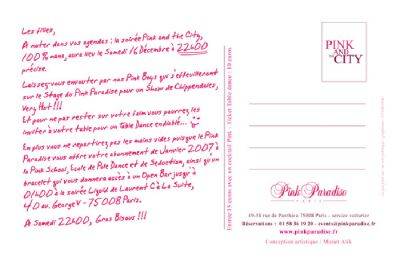 Les filles,
A noter dans vos agendas : la soirée Pink and the City,
100% nana, aura lieu le Samedi 16 Décembre à 22H00
précise.
Laissez-vous envouter par nos Pink Boys qui s'effeuilleront
sur le Stage du Pink Paradise pour un Show de Chippendales,
Very Hot !!!
Et pour ne pas rester sur votre faim vous pourrez les
inviter à votre table pour un Table Dance endiablé...
En plus vous ne repartirez pas les mains vides puisque le Pink
Paradise vous offre votre abonnement de Janvier 2007 à
la Pink School, École de Pole Dance et de Séduction, ainsi qu'un
bracelet qui vous donnera accès à un Open Bar jusqu'à
01H00 à la soirée Liquid de Laurent C à La Suite,
40 av. George V - 75008 Paris.
A Samedi 22H00, Gros Bisous !!!
Entrée 15 euros avec un cocktail Pink - Ticket Table dance : 10 euros
PINK
AND
THE
CITY
Pink Paradise
PARIS
49-51 rue de Ponthieu 75008 Paris - service voiturier
Réservations : 01 58 36 19 20 - events@pinkparadise.fr
www.pinkparadise.fr
Conception artistique :